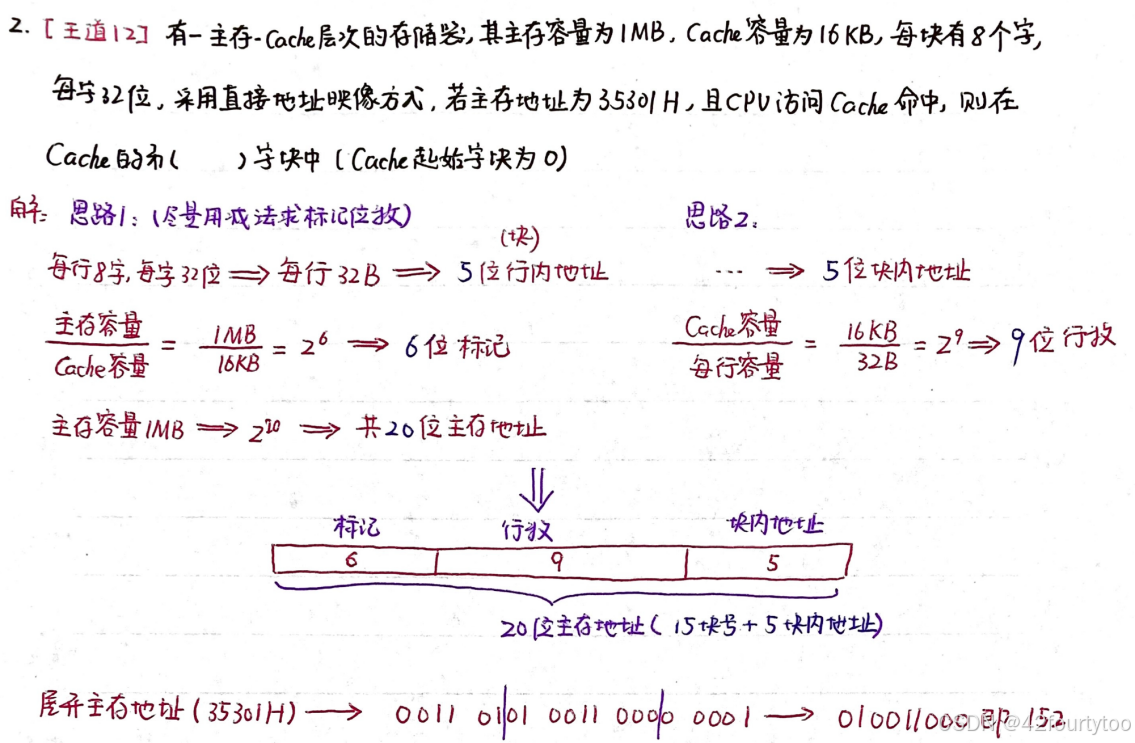 2. [王道12] 有一主存-Cache层次的存储器,其主存容量为1MB, Cache容量为16KB, 每块有8个字,
每字32位, 采用直接地址映像方式, 若主存地址为35301H, 且CPU访问Cache命中, 则在
Cache的第( )字块中 (Cache起始字块为0)
解: 思路1: (尽量用减法求标记位数)
(块)
每行8字, 每字32位 ⟹ 每行32B ⟹ 5位行内地址
主存容量/Cache容量 = 1MB/16KB = 2^6 ⟹ 6位标记
主存容量1MB ⟹ 2^20 ⟹ 共20位主存地址
思路2:
… ⟹ 5位块内地址
Cache容量/每行容量 = 16KB/32B = 2^9 ⟹ 9位行数
标记 行数 块内地址
6 9 5
20位主存地址 (15块号+5块内地址)
展开主存地址 (35301H) ⟶ 0011 01|01 0011 000|0 0001 ⟶ 010011000 即 152
CSDN @42fourtytoo